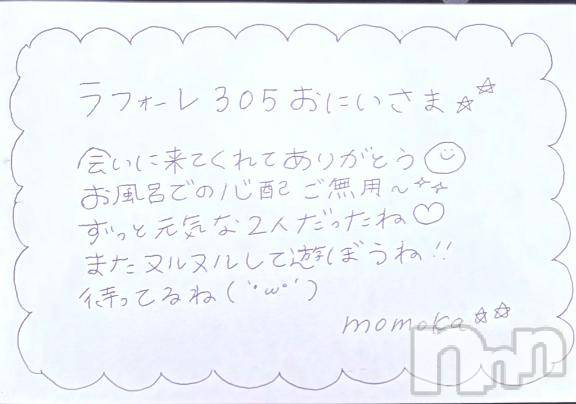 ラフォーレ305おにいさま☆☆
会いに来てくれてありがとう
お風呂での心配ご無用～
ずっと元気な2人だったね♡
またヌルヌルして遊ぼうね!!
待ってるね(´･ω･`)
momoka☆☆
nnn